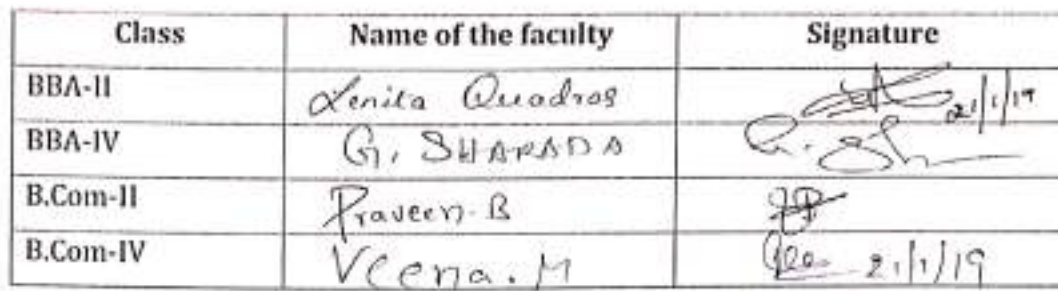 Class Name of the faculty Signature
BBA-II Lenita Quadros 21/1/19
BBA-IV G. SHARADA G. Sh
B.Com-II Praveen. B
B.Com-IV Veena. M 21/1/19